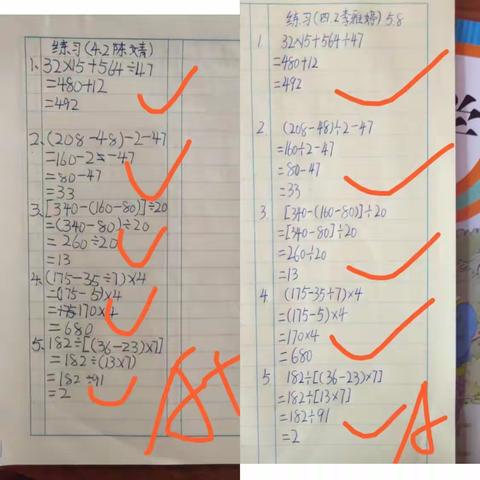 练习(4.2陈文婧)
1、32×15+564÷47
=480+12
=492
2、(208-48)-2-47
=160-2=-47
=80-47
=33
3、[340-(160-80)]÷20
=(340-80)÷20
=260÷20
=13
4、(175-35÷7)×4
=(175-5)×4
=170×4
=680
5、182÷[(36-23)×7]
=182÷(13×7)
=182÷91
=2
A+
练习(四.2李雅婷)5.8
1. 32×15+564÷47
=480+12
=492
2. (208-48)÷2-47
=160÷2-47
=80-47
=33
3. [340-(160-80)]÷20
=[340-80]÷20
=260÷20
=13
4 (175-35÷7)×4
=(175-5)×4
=170×4
=680
5 182÷[(36-23)×7]
=182÷[13×7]
=182÷91
=2
A